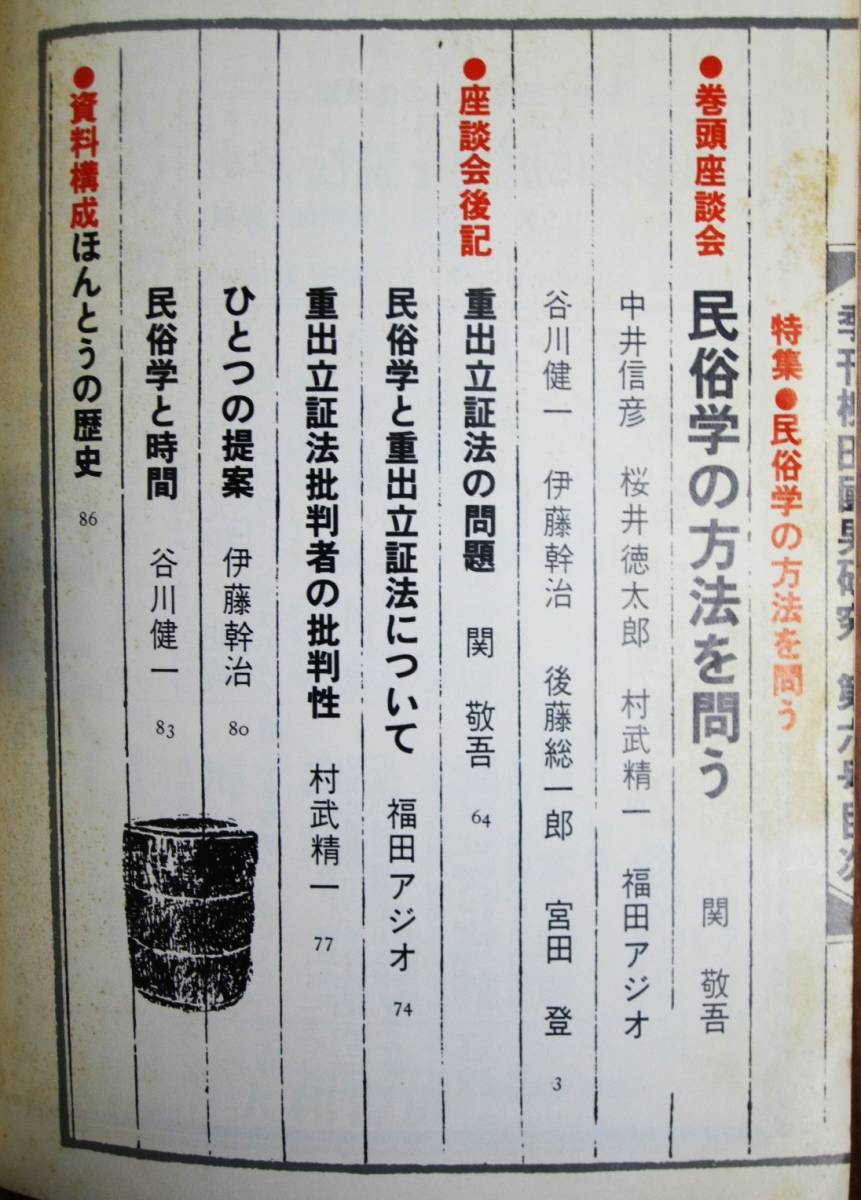 季刊柳田國男研究 第六号目次
特集●民俗学の方法を問う
●巻頭座談会 民俗学の方法を問う 関 敬吾
中井信彦 桜井徳太郎 村武精一 福田アジオ
谷川健一 伊藤幹治 後藤総一郎 宮田 登 3
●座談会後記 重出立証法の問題 関 敬吾 64
民俗学と重出立証法について 福田アジオ 74
重出立証法批判者の批判性 村武精一 77
ひとつの提案 伊藤幹治 80
民俗学と時間 谷川健一 83
●資料構成 ほんとうの歴史 86